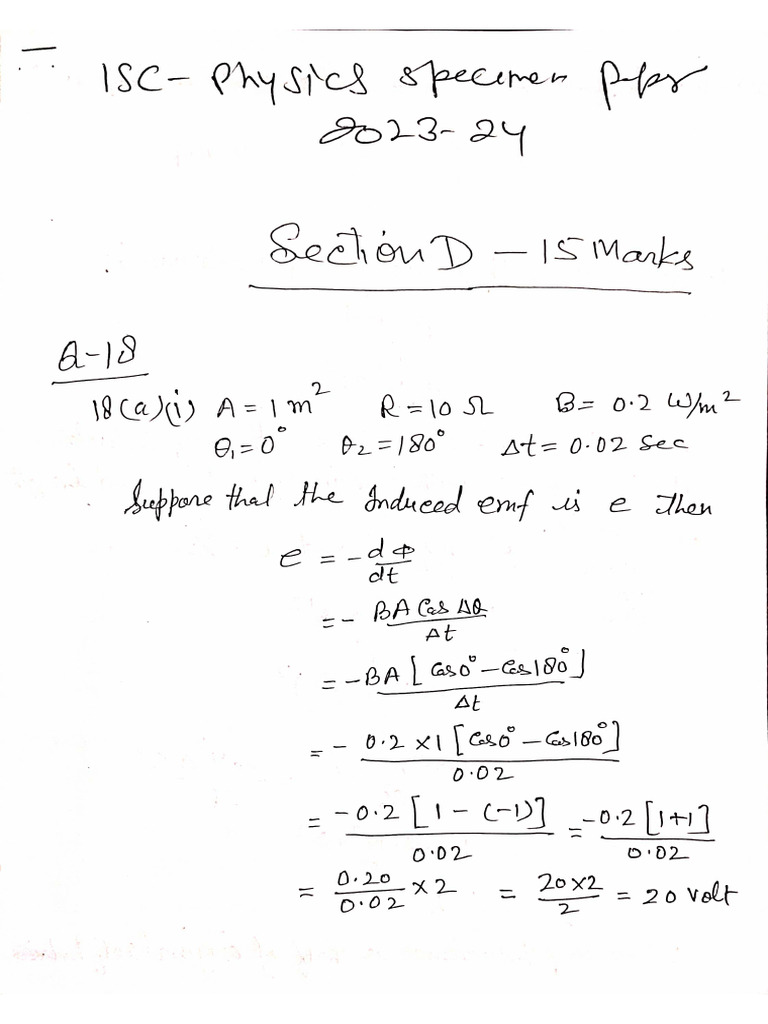 ISC - Physics specimen Paper
2023-24
Section D - 15 Marks
Q-18
18(a)(i) A = 1 m² R = 10 Ω B = 0.2 W/m²
θ₁ = 0° θ₂ = 180° Δt = 0.02 sec
Suppose that the Induced emf is e then
e = - dΦ/dt
= - BA Cos Δθ / Δt
= - BA [Cos0° - Cos180°] / Δt
= - 0.2 × 1 [Cos0° - Cos180°] / 0.02
= - 0.2 [1 - (-1)] / 0.02 = - 0.2 [1+1] / 0.02
= 0.20 / 0.02 × 2 = 20×2 / 2 = 20 volt